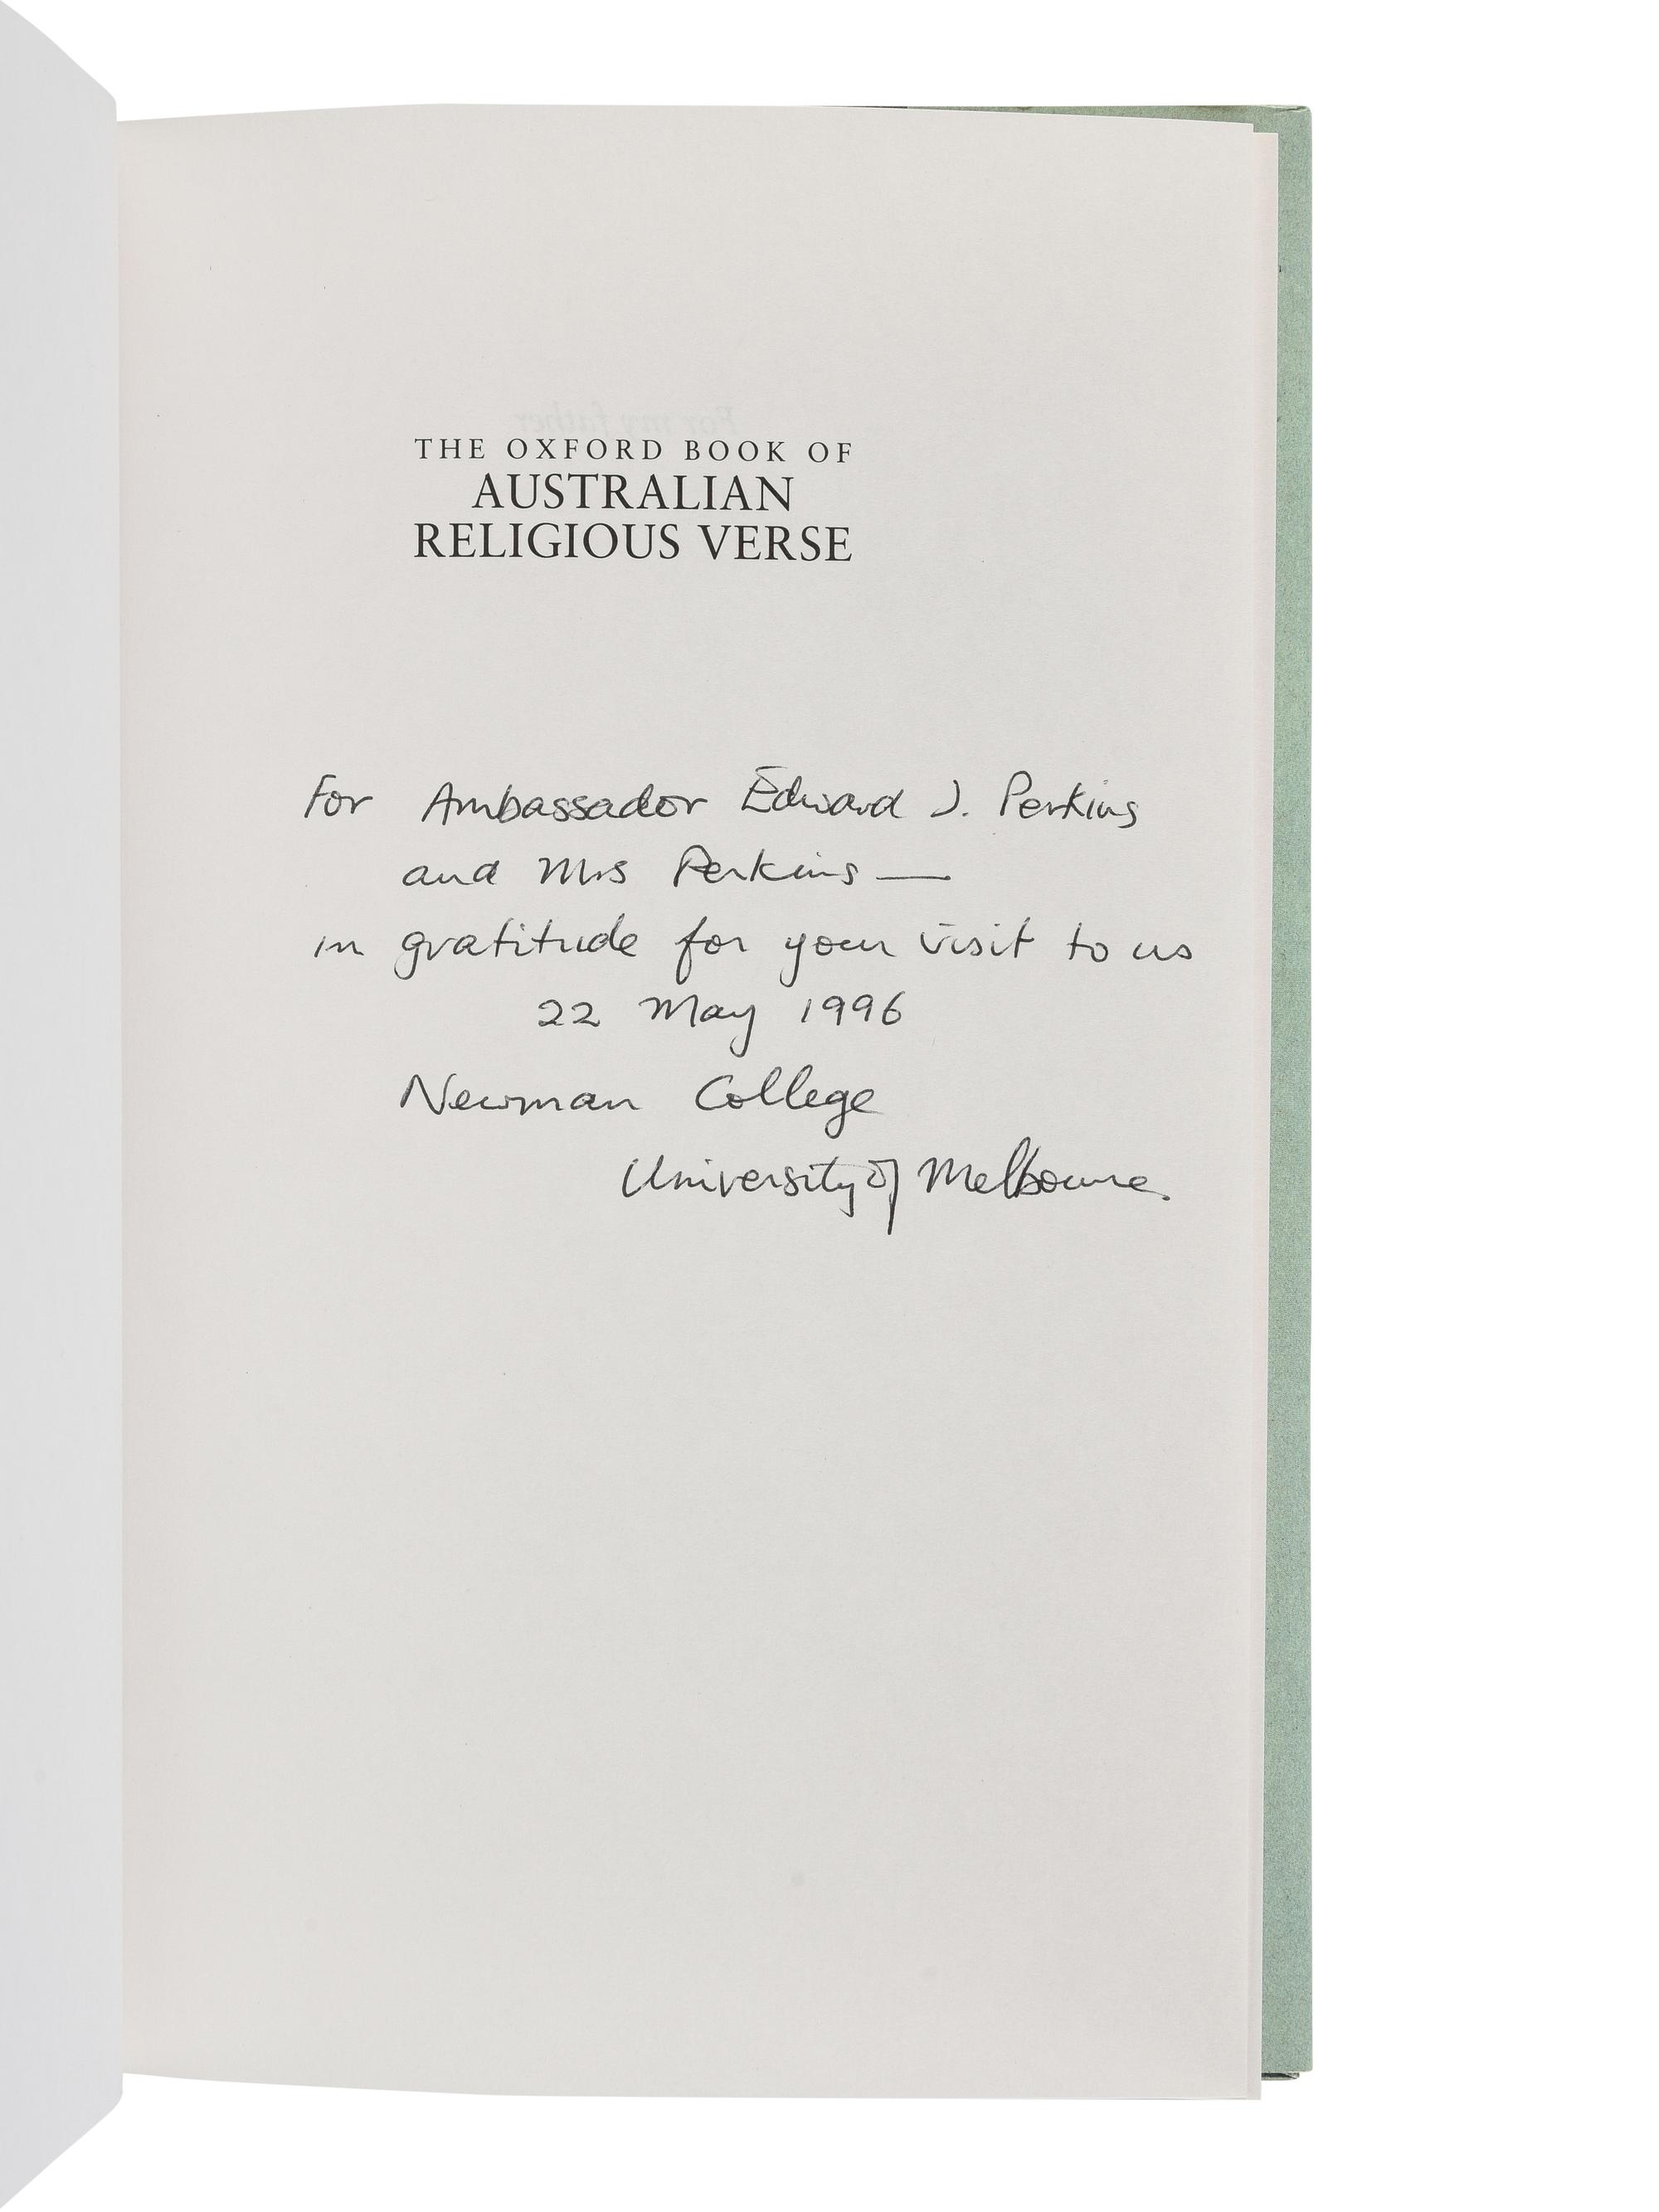 For my father
THE OXFORD BOOK OF
AUSTRALIAN
RELIGIOUS VERSE
For Ambassador Edward J. Perkins
and Mrs Perkins —
in gratitude for your visit to us
22 May 1996
Newman College
University of Melbourne.